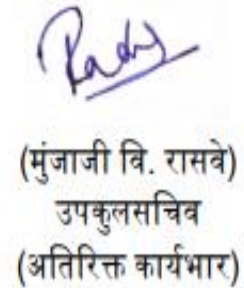 (मुंजाजी वि. रासवे)
उपकुलसचिव
(अतिरिक्त कार्यभार)